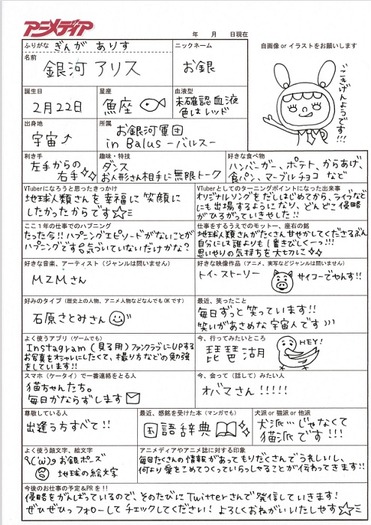 アニメディア
年 月 日現在
ふりがな ぎんが ありす
ニックネーム
自画像 or イラストをお願いします
名前
銀河アリス
お銀
ごきげんようです!!!
誕生日
2月22日
星座
魚座
血液型
未確認血液
色はレッド
出身地
宇宙
所属
お銀河軍団
in Balus ーバルスー
利き手
左手からの
右手
趣味・特技
ダンス
お人形さん相手に無限トーク
好きな食べ物
ハンバーガー、ポテト、からあげ、
食パン、マーブルチョコ など
VTuberになろうと思ったきっかけ
地球人類さんを幸福に笑顔に
したかったからです☆ミ
VTuberとしてのターニングポイントになった出来事
オリジナルソングをだしはじめてから、ライブなど
にも出場するようになり、どんどこ侵略
がひろがっていきました!!
ここ1年の仕事でのハプニング
たった今!! ハプニングエピソードがないことが
ハプニングです
仕事をするうえでのモットー、座右の銘
好きな音楽、アーティスト(ジャンルは問いません)
MZMさん
好きな映像作品(アニメ、実写などジャンルは問いません)
トイ・ストーリー
サイコーでやんす!!
好みのタイプ(歴史上の人物、アニメ人物などなんでもOKです)
石原さとみさん
最近、笑ったこと
毎日ずっと笑っています!!
笑いがあさめな宇宙人です
よく使うアプリ(ゲームでも)
Instagram(見る用)ファンクラブにUPする
お写真をオシャレにしたくて、撮り方などの勉強
をしています!!!
今、行ってみたいところ
琵琶湖
HEY!
スマホ(ケータイ)で一番連絡をとる人
猫ちゃんたち。
毎日かならずします
今、会って(話して)みたい人
オバマさん!!!!!
尊敬している人
出逢うすべて!!
最近、感銘を受けた本(マンガでも)
国語辞典
犬派 or 猫派 or 他派
犬派…じゃなくて
猫派です!!!
よく使う顔文字、絵文字
お銀ポーズ
地球の絵文字
アニメディアやアニメ誌に対する印象
毎回たくさんの情報があってもりだくさんでうれしいし、
何より愛をこめてつくっていらっしゃることが伝わってきます!!
今後のお仕事の予定&PRを!!
侵略をがんばっているので、そのたびにTwitterさんで発信していきます!
ぜひぜひフォローしてチェックしてください! よろしくおねがいいたします☆